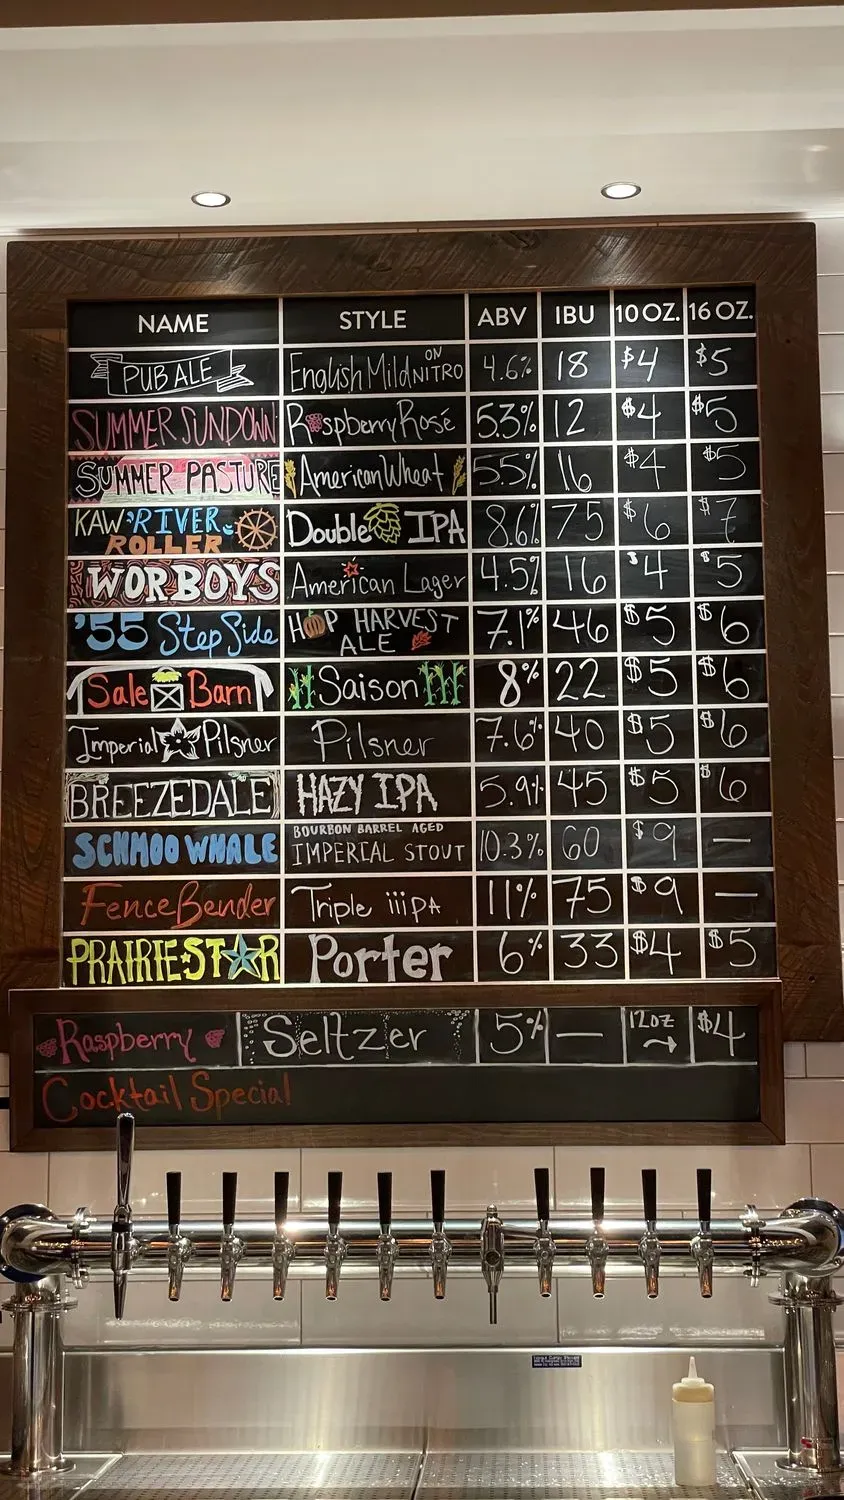 NAME STYLE ABV IBU 10 OZ. 16 OZ.
PUB ALE English Mild ON NITRO 4.6% 18 $4 $5
SUMMER SUNDOWN Raspberry Rosé 5.3% 12 $4 $5
SUMMER PASTURE American Wheat 5.5% 16 $4 $5
KAW RIVER ROLLER Double IPA 8.6% 75 $6 $7
WORBOYS American Lager 4.5% 16 $4 $5
'55 Step Side HOP HARVEST ALE 7.1% 46 $5 $6
Sale Barn Saison 8% 22 $5 $6
Imperial Pilsner Pilsner 7.6% 40 $5 $6
BREEZEDALE HAZY IPA 5.9% 45 $5 $6
SCHMOO WHALE BOURBON BARREL AGED IMPERIAL STOUT 10.3% 60 $9 —
Fence Bender Triple iiiPA 11% 75 $9 —
PRAIRIE STAR Porter 6% 33 $4 $5
Raspberry Seltzer 5% — 12oz → $4
Cocktail Special